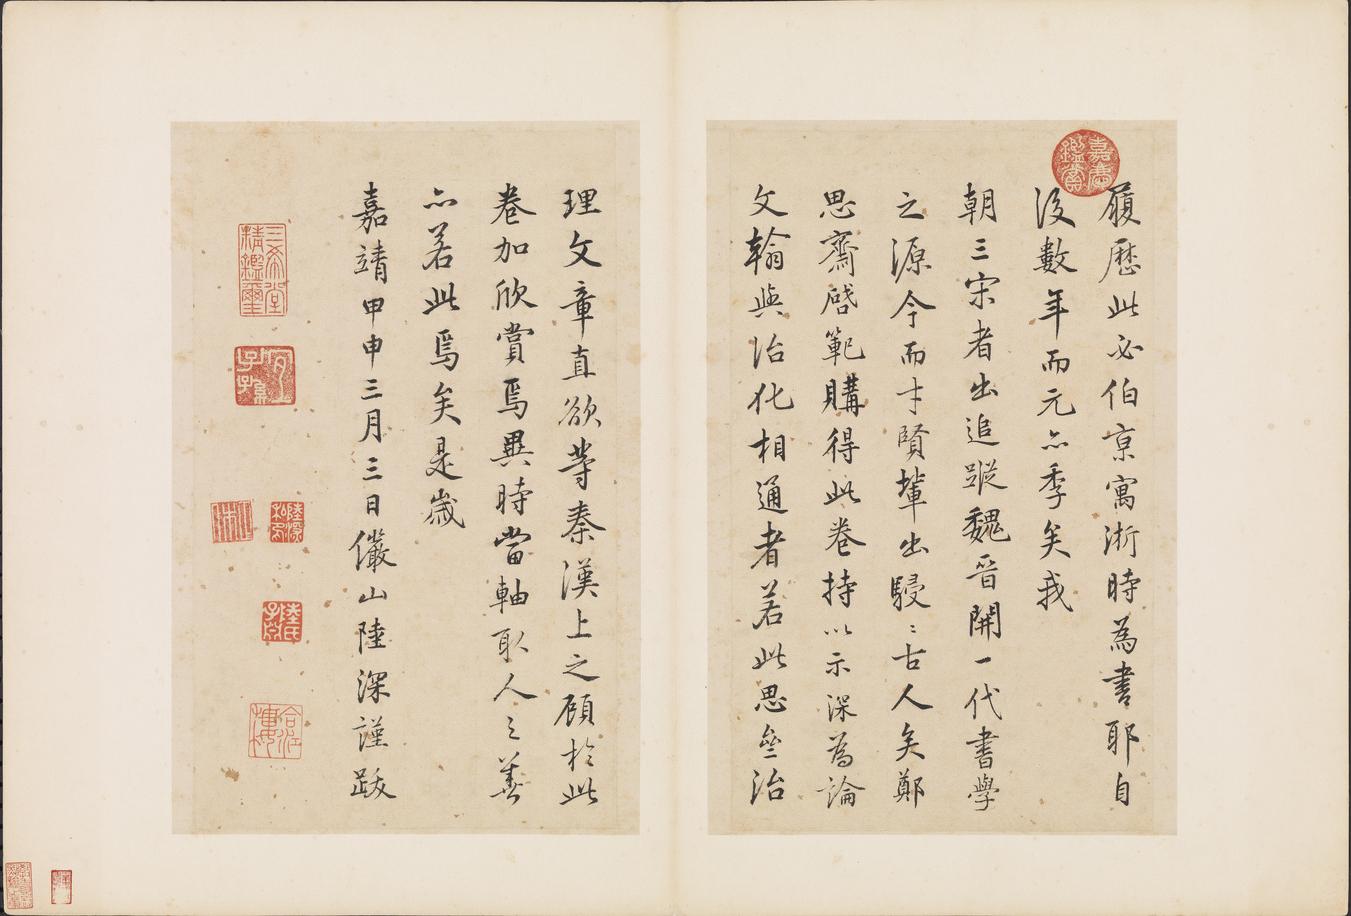 嘉慶鑑賞
履歷此必伯京寓浙時為書耶自
後數年而元亦季矣我
朝三宋者出追蹤魏晉開一代書學
之源今而才賢輩出駸〻古人矣鄭
思齋啓範購得此卷持以示深為論
文翰與治化相通者若此思叄治
理文章直欲等秦漢上之顧於此
卷加欣賞焉異時當軸取人之善
亦若此焉矣是歲
嘉靖甲申三月三日儼山陸深謹跋
三希堂精鑑璽
宜子孫